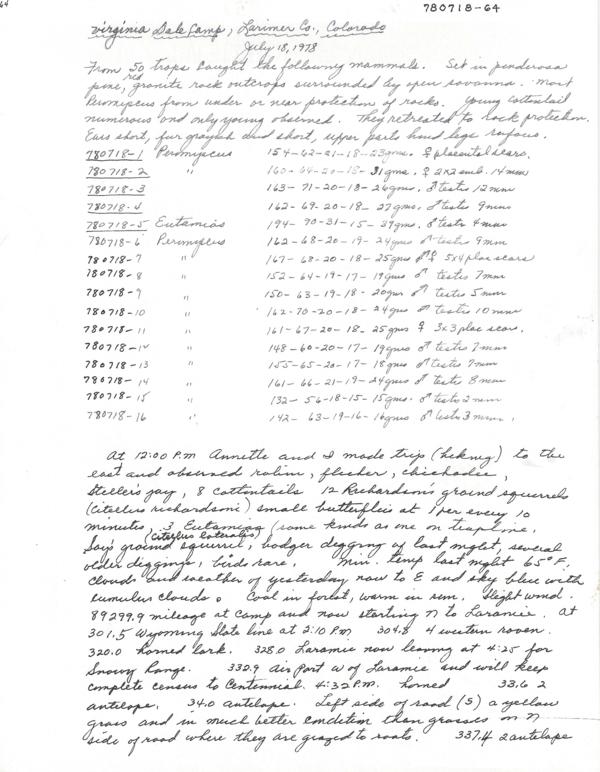 64
780718-64
Virginia Dale Camp, Larimer Co., Colorado
July 18, 1978
From 50 traps caught the following mammals. Set in ponderosa
pine, red granite rock outcrops surrounded by open savanna. Most
Peromyscus from under or near protection of rocks. Young Cottontail
numerous and only young observed. They retreated to rock protection.
Ears short, fur grayish and short, upper parts hind legs rufous.
780718-1 Peromyscus 154-62-21-18-23gms. ♀ placental scars.
780718-2 " 160-64-20-18-31gms. ♀ 2x2 emb. 14mm
780718-3 163-71-20-18-26gms. ♂ testis 12mm
780718-4 162-69-20-18-27gms. ♂ testis 9mm
780718-5 Eutamias 194-90-31-15-39gms. ♂ testis 4mm
780718-6 Peromyscus 162-68-20-19-24gms ♂ testis 9mm
780718-7 " 167-68-20-18-25gms ♀ 5x4 plac scars
780718-8 " 152-64-19-17-19gms ♂ testis 7mm
780718-9 " 150-63-19-18-20gms ♂ testis 5mm
780718-10 " 162-70-20-18-24gms ♂ testis 10mm
780718-11 " 161-67-20-18-25gms ♀ 3x3 plac scar.
780718-12 " 148-60-20-17-19gms ♂ testis 7mm
780718-13 " 155-65-20-17-18gms ♂ testis 7mm
780718-14 " 161-66-21-19-24gms ♂ testis 8mm
780718-15 " 132-56-18-15-15gms. ♂ testis 2mm
780718-16 " 142-63-19-16-16gms ♂ testis 3mm.
At 12:00 P.M Annette and I made trip (hiking) to the
east and observed robin, flicker, chickadee,
Steller's jay, 8 Cottontails 12 Richardson's ground squirrels
(Citellus richardsoni) small butterflies at 1 per every 10
minutes, 3 Eutamias (some kinds as one on trapline,
Say's ground squirrel, (Citellus lateralis) badger digging of last night, several
older diggings, birds rare. Min. temp last night 65°F,
clouds and weather of yesterday now to E and sky blue with
cumulus clouds. Cool in forest, warm in sun. Slight wind.
89299.9 mileage at Camp and now starting N to Laramie. At
301.5 Wyoming State line at 2:10 P.M 304.8 4 western raven.
320.0 horned lark. 328.0 Laramie now leaving at 4:25 for
Snowy Range. 332.9 Air Port W of Laramie and will keep
complete census to Centennial. 4:32 P.M. horned 33.6 2
antelope. 34.0 antelope. Left side of road (S) a yellow
grass and in much better condition than grasses on N
side of road where they are grazed to roots. 337.4 2 antelope